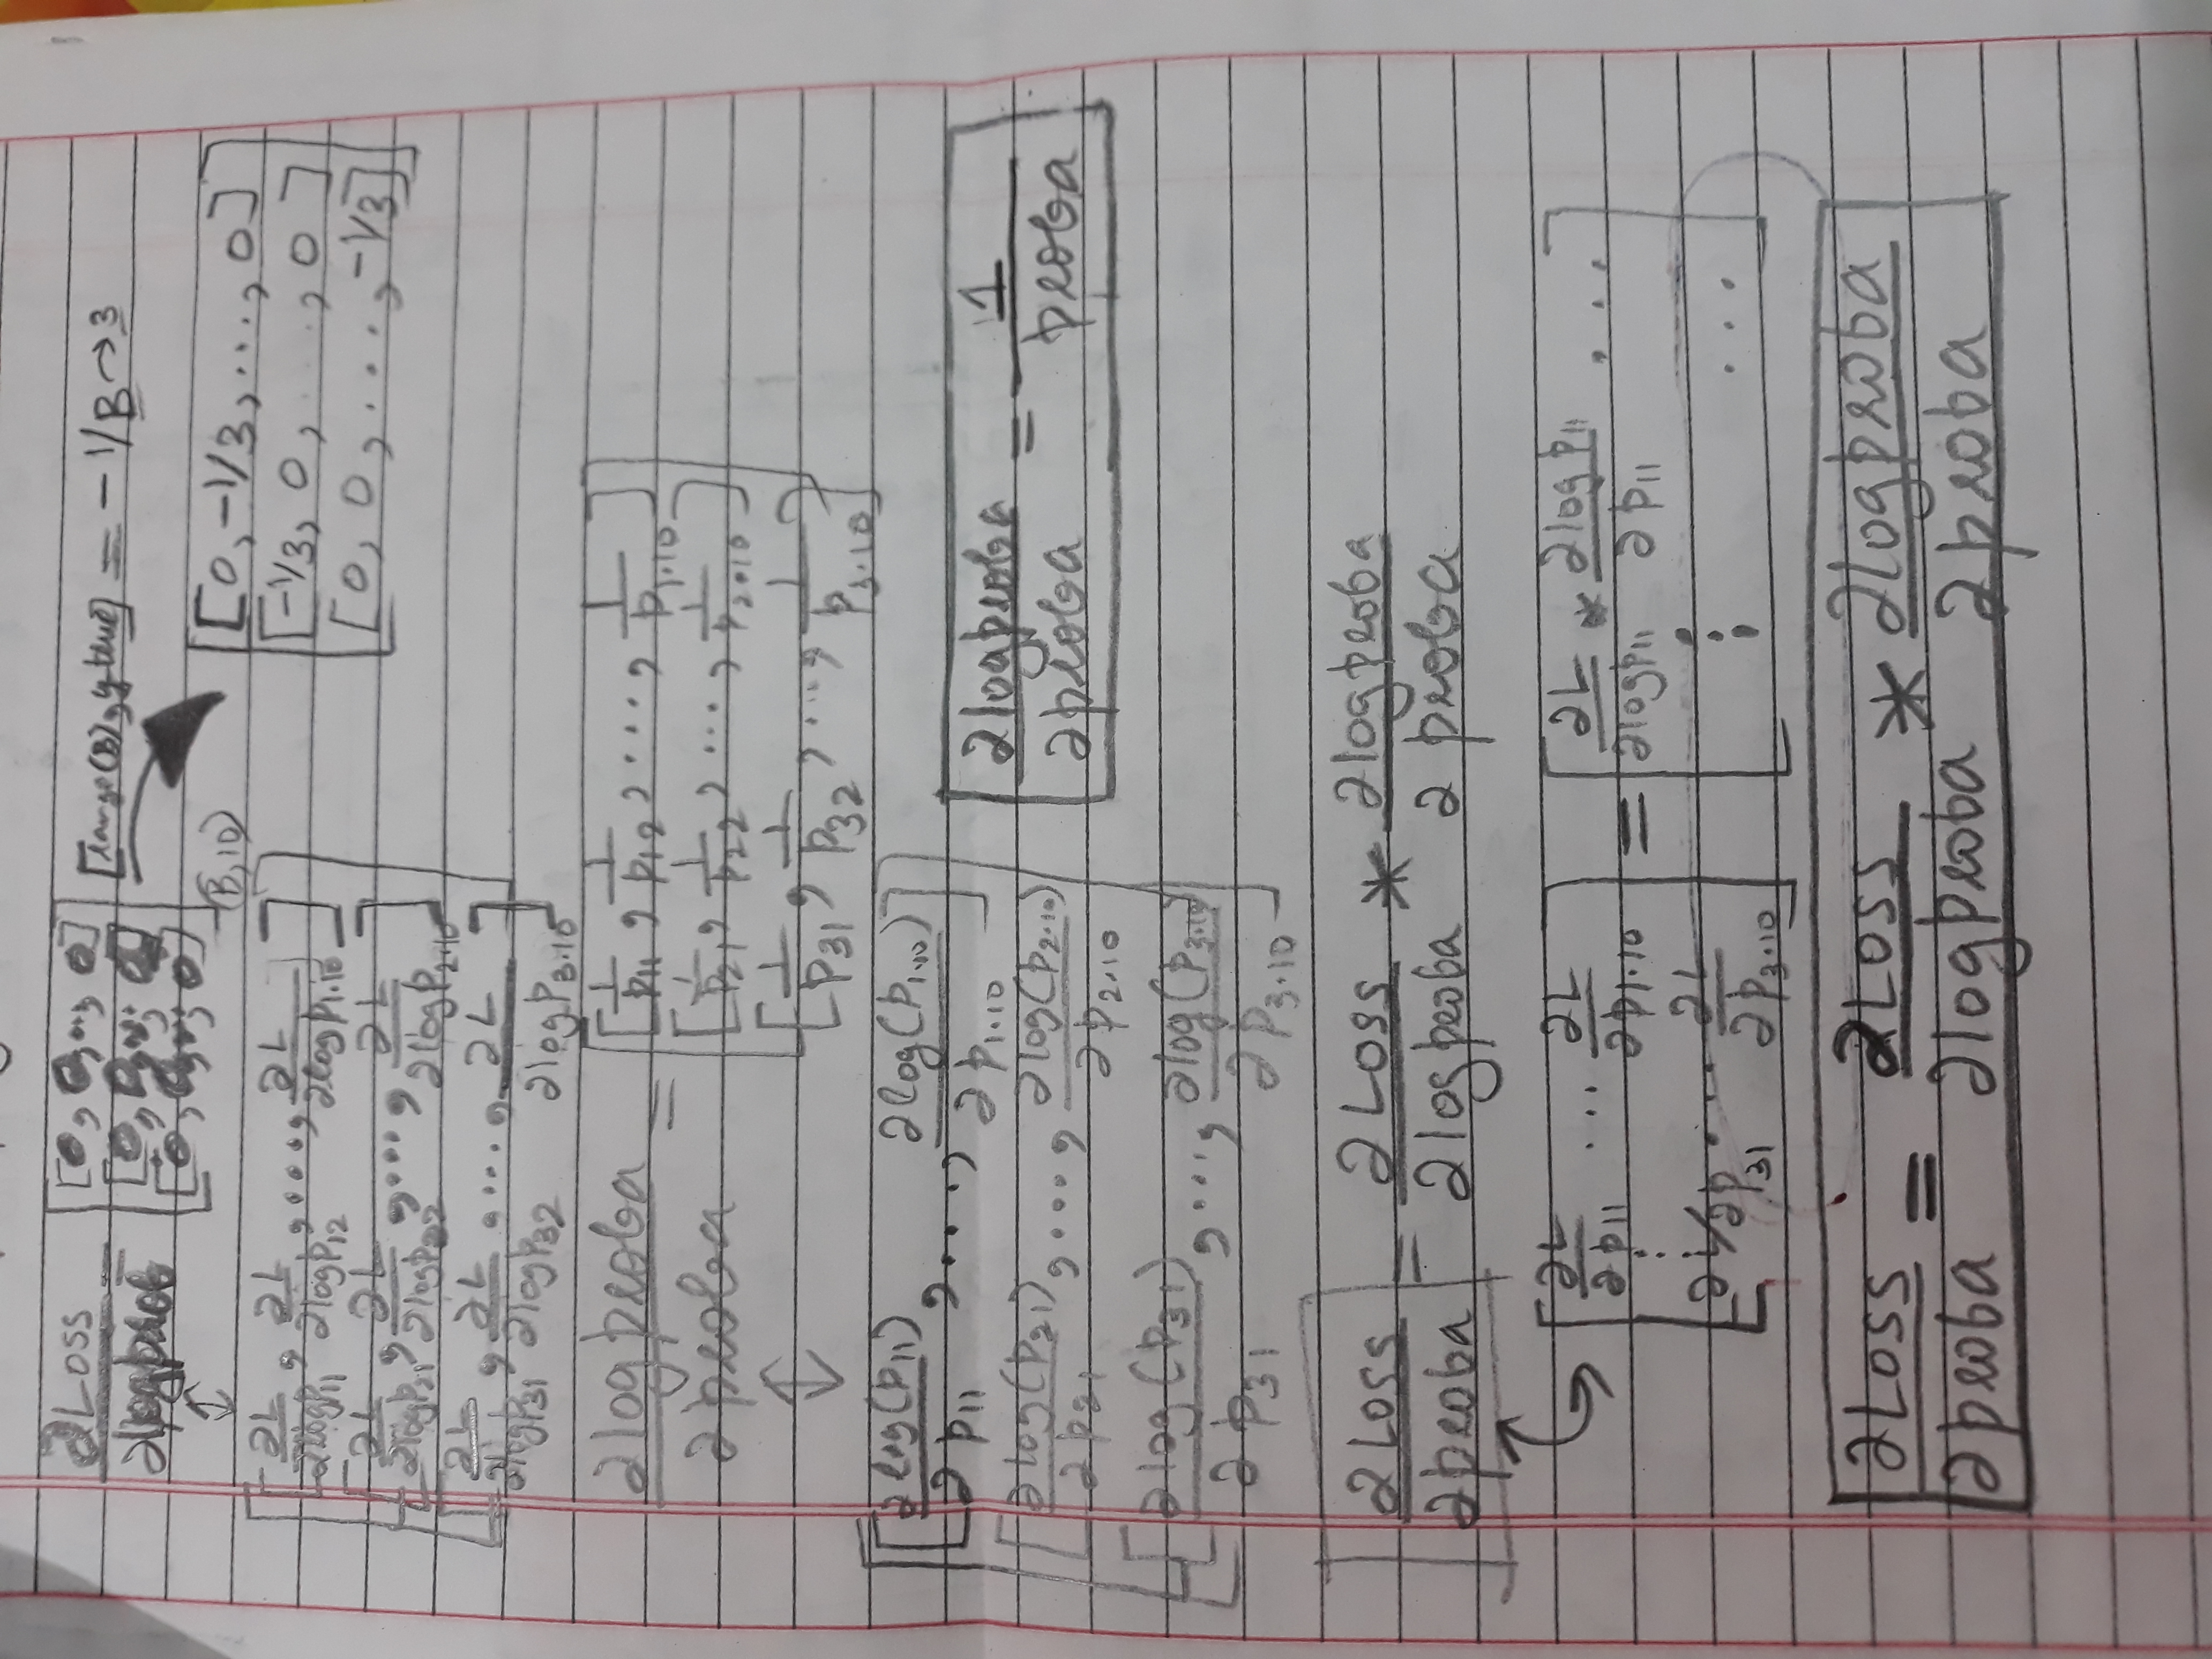 ∂Loss/∂logprob = [[0, 0, ..., 0] [0, 0, ..., 0] [0, 0, ..., 0]] (B,10) [range(B), ytrue] = -1/B → 3
↕
[[0, -1/3, ..., 0]
[-1/3, 0, ..., 0]
[0, 0, ..., -1/3]]
[[∂L/∂logp11, ∂L/∂logp12, ...., ∂L/∂logp1.10]
[∂L/∂logp21, ∂L/∂logp22, ...., ∂L/∂logp2.10]
[∂L/∂logp31, ∂L/∂logp32, ...., ∂L/∂logp3.10]]
∂logproba/∂proba = [[1/p11, 1/p12, ...., 1/p1.10]
[1/p21, 1/p22, ...., 1/p2.10]
[1/p31, 1/p32, ...., 1/p3.10]]
↕
[[∂log(p11)/∂p11, ...., ∂log(p1.10)/∂p1.10]
[∂log(p21)/∂p21, ...., ∂log(p2.10)/∂p2.10]
[∂log(p31)/∂p31, ...., ∂log(p3.10)/∂p3.10]]
∂logproba/∂proba = 1/proba
∂Loss/∂proba = ∂Loss/∂logproba * ∂logproba/∂proba
[∂L/∂p11 ... ∂L/∂p1.10 ⋮ ∂L/∂p31 .... ∂L/∂p3.10] = [∂L/∂logp11 * ∂logp11/∂p11 ... ⋮ ...]
∂Loss/∂proba = ∂Loss/∂logproba * ∂logproba/∂proba